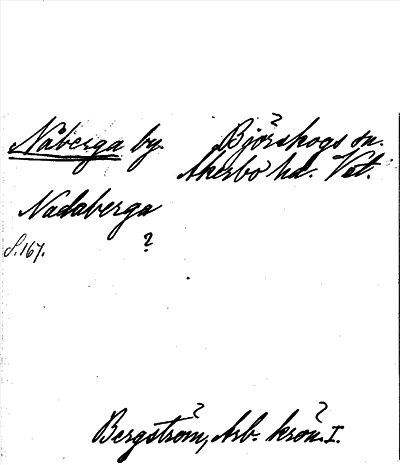 Nåberga by. Björskogs sn.
Åkerbo hd. Vst.
Nadaberga
S. 167. ?
Bergström, Arb. krön. I.